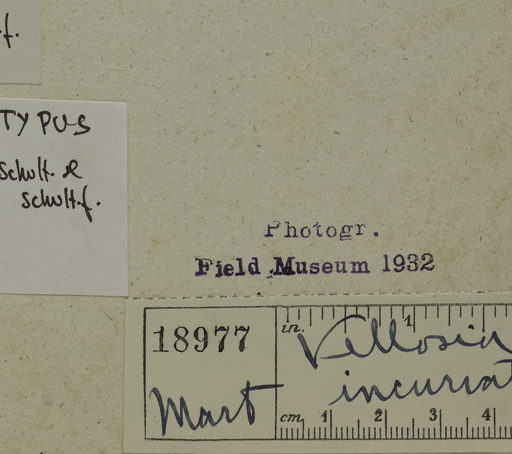 .f.
TYPUS
Schult. &
Schult.f.
Photogr.
Field Museum 1932
18977
Mart
in. 1
Vellosia
incurvat
cm 1 2 3 4